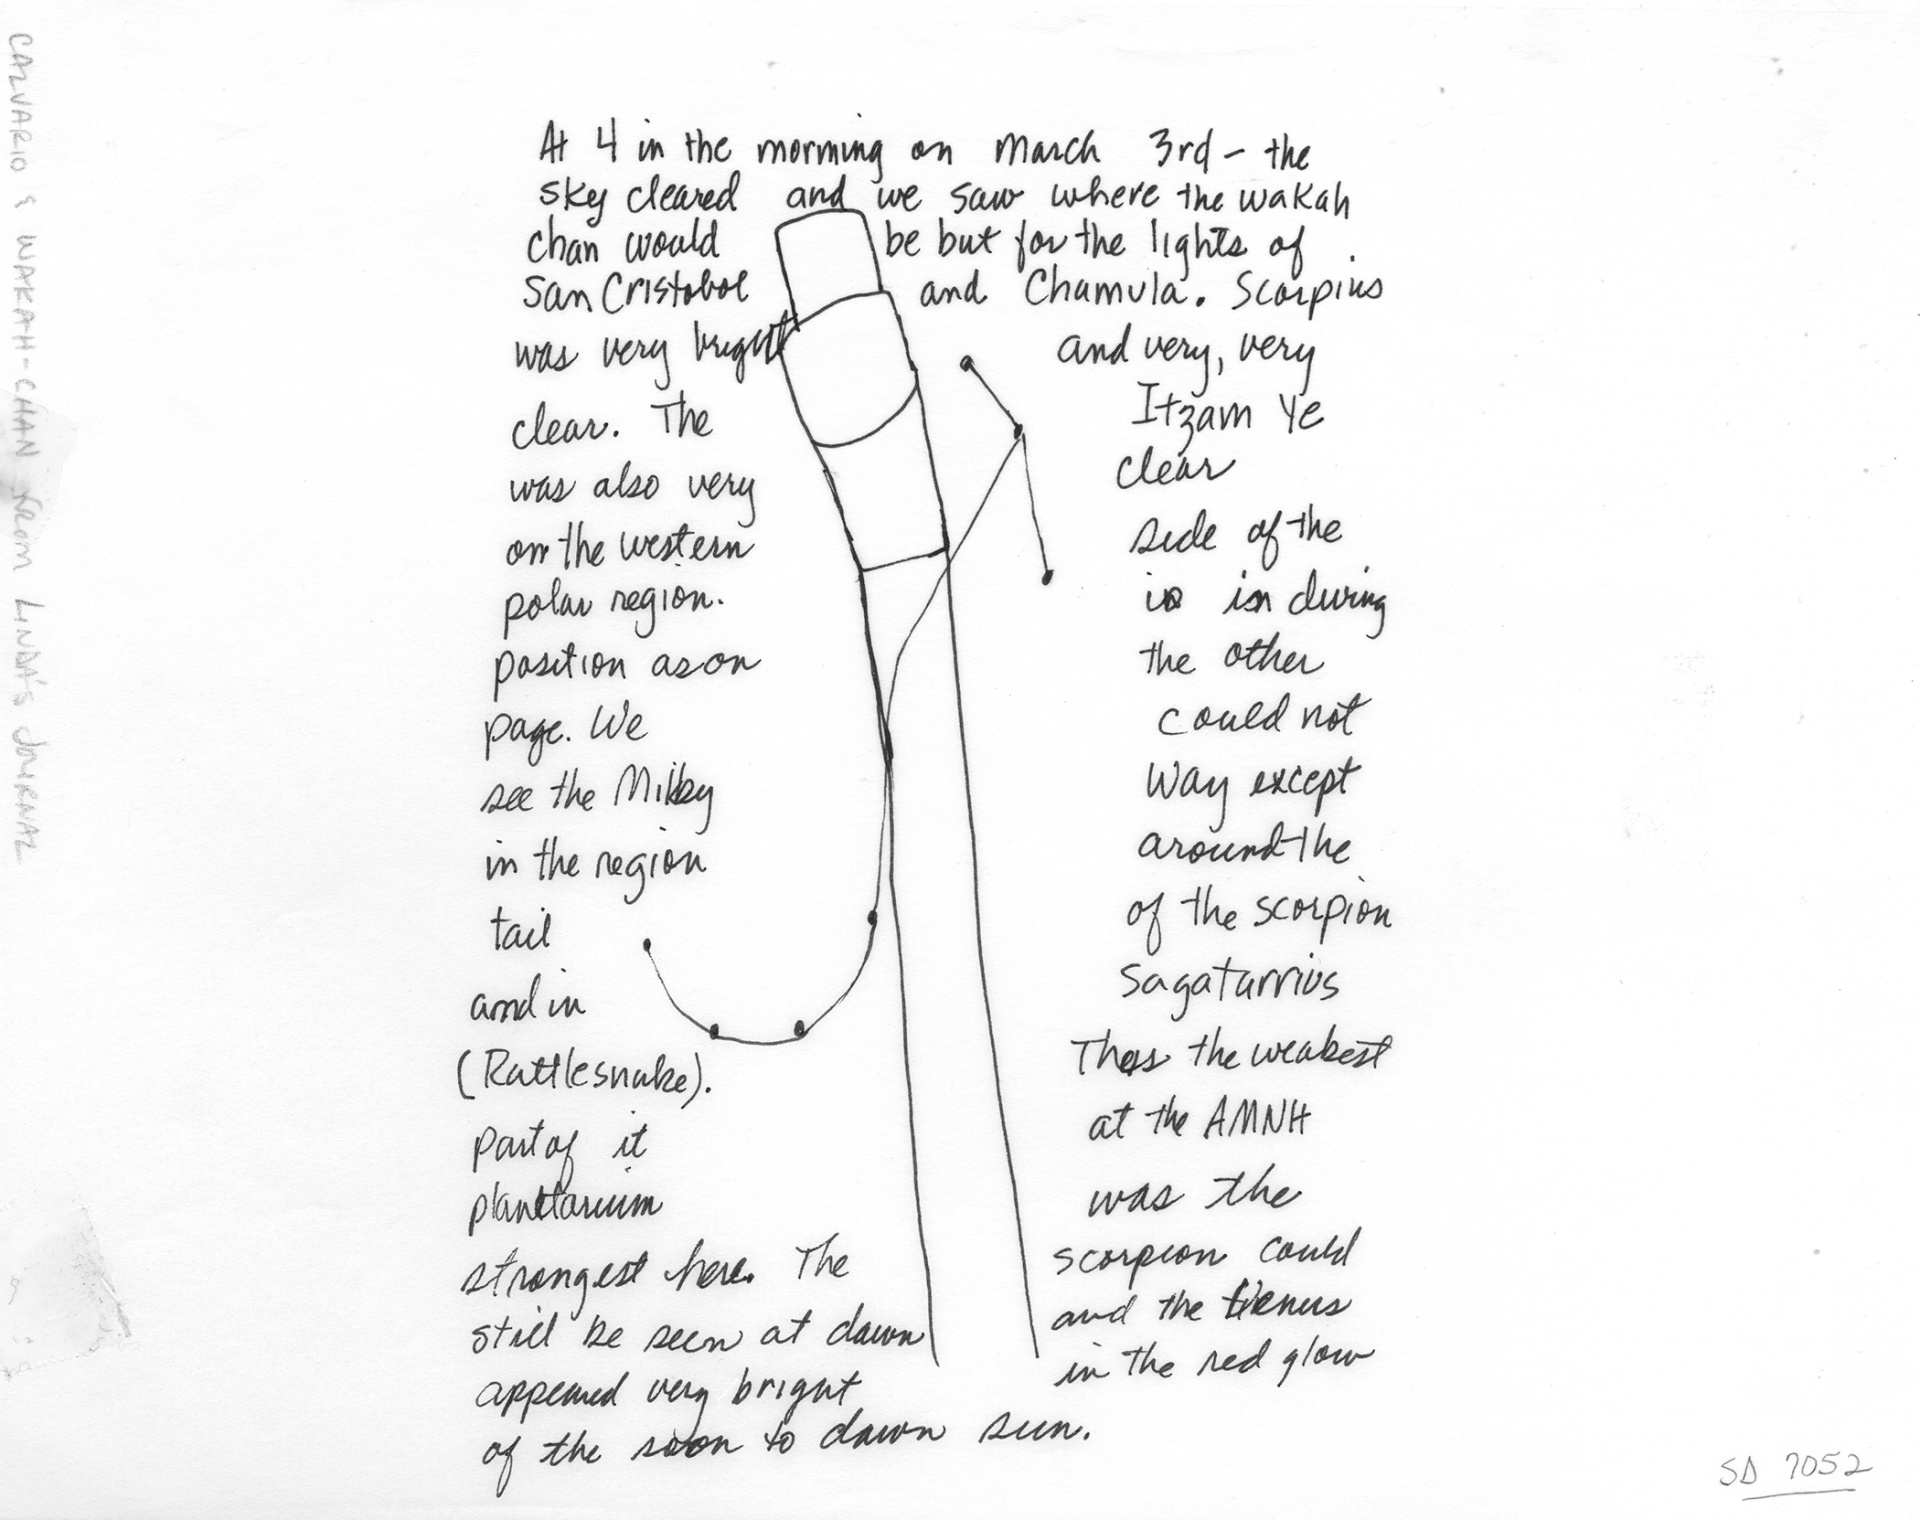 CALVARIO & WAKAH-CHAN FROM LINDA'S JOURNAL
At 4 in the morning on March 3rd - the
sky cleared and we saw where the wakah
chan would be but for the lights of
San Cristobol and Chamula. Scorpius
was very bright and very, very
clear. The Itzam Ye
was also very clear
on the western side of the
polar region. is in during
position as on the other
page. We could not
see the Milky Way except
in the region around the
tail of the scorpion
and in Sagatarrius
(Rattlesnake). This the weakest
part of it at the AMNH
planetarium was the
strongest here. The scorpion could
still be seen at dawn and the Venus
appeared very bright in the red glow
of the soon to dawn sun.
SD 7052